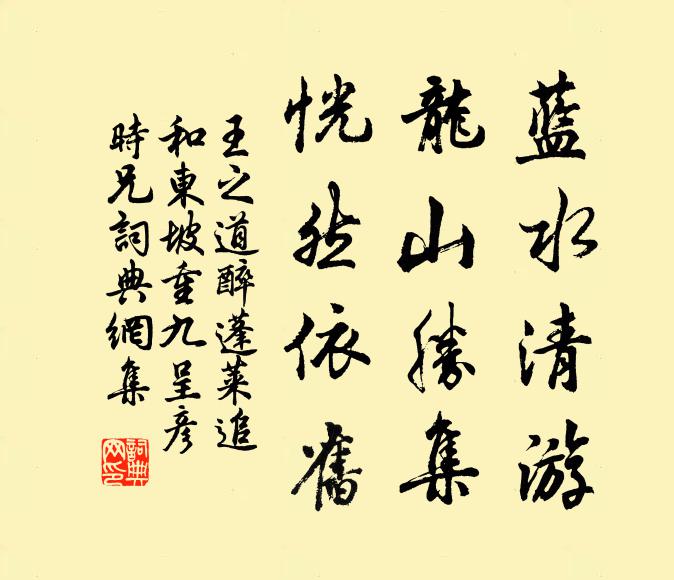 藍水清游
龍山勝集
恍然依舊
王之道醉蓬萊追
和東坡重九呈彥
時兄詞典網集
詞典
网印